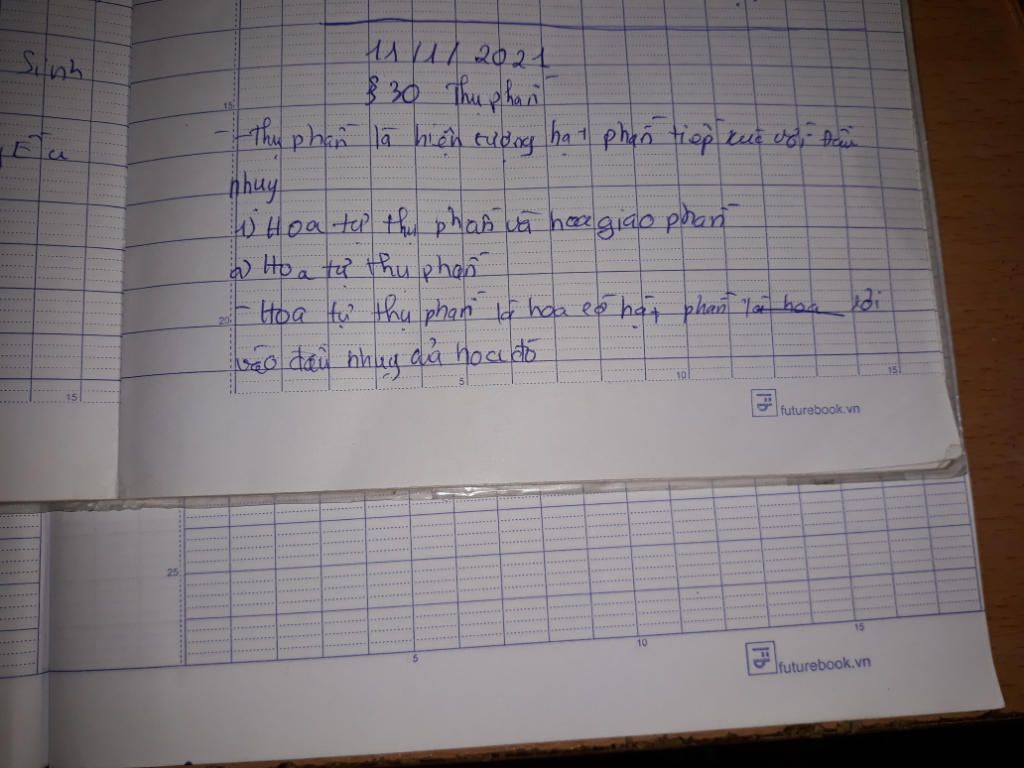 Sinh
11/1/2021
§ 30 Thụ phấn
- Thụ phấn là hiện tượng hạt phấn tiếp xúc với đầu
nhuy
1) Hoa tự thụ phấn và hoa giao phấn
a) Hoa tự thụ phấn
- Hoa tự thụ phấn là hoa có hạt phấn là hoa rơi
vào đầu nhụy của hoa đó
15
20
5
10
15
15
futurebook.vn
25
5
10
15
futurebook.vn